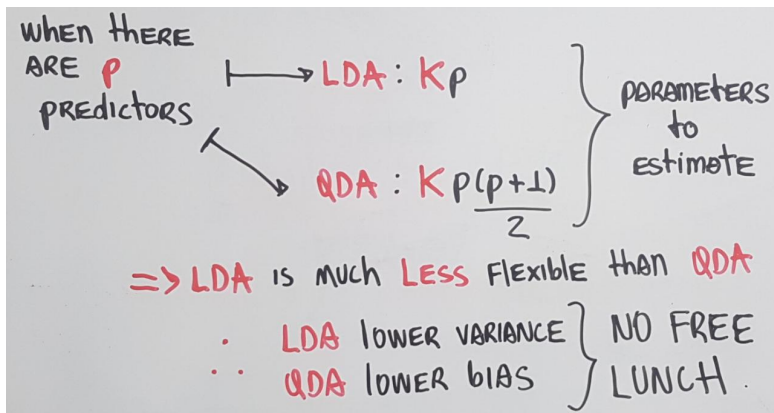 WHEN THERE
ARE p
PREDICTORS
LDA : Kp
QDA : K p(p+1)/2
PARAMETERS
to
EStimate
=> LDA is much LESS FLEXIBLE than QDA
∴ LDA lower VARIANCE
QDA lower bias
NO FREE
LUNCH.